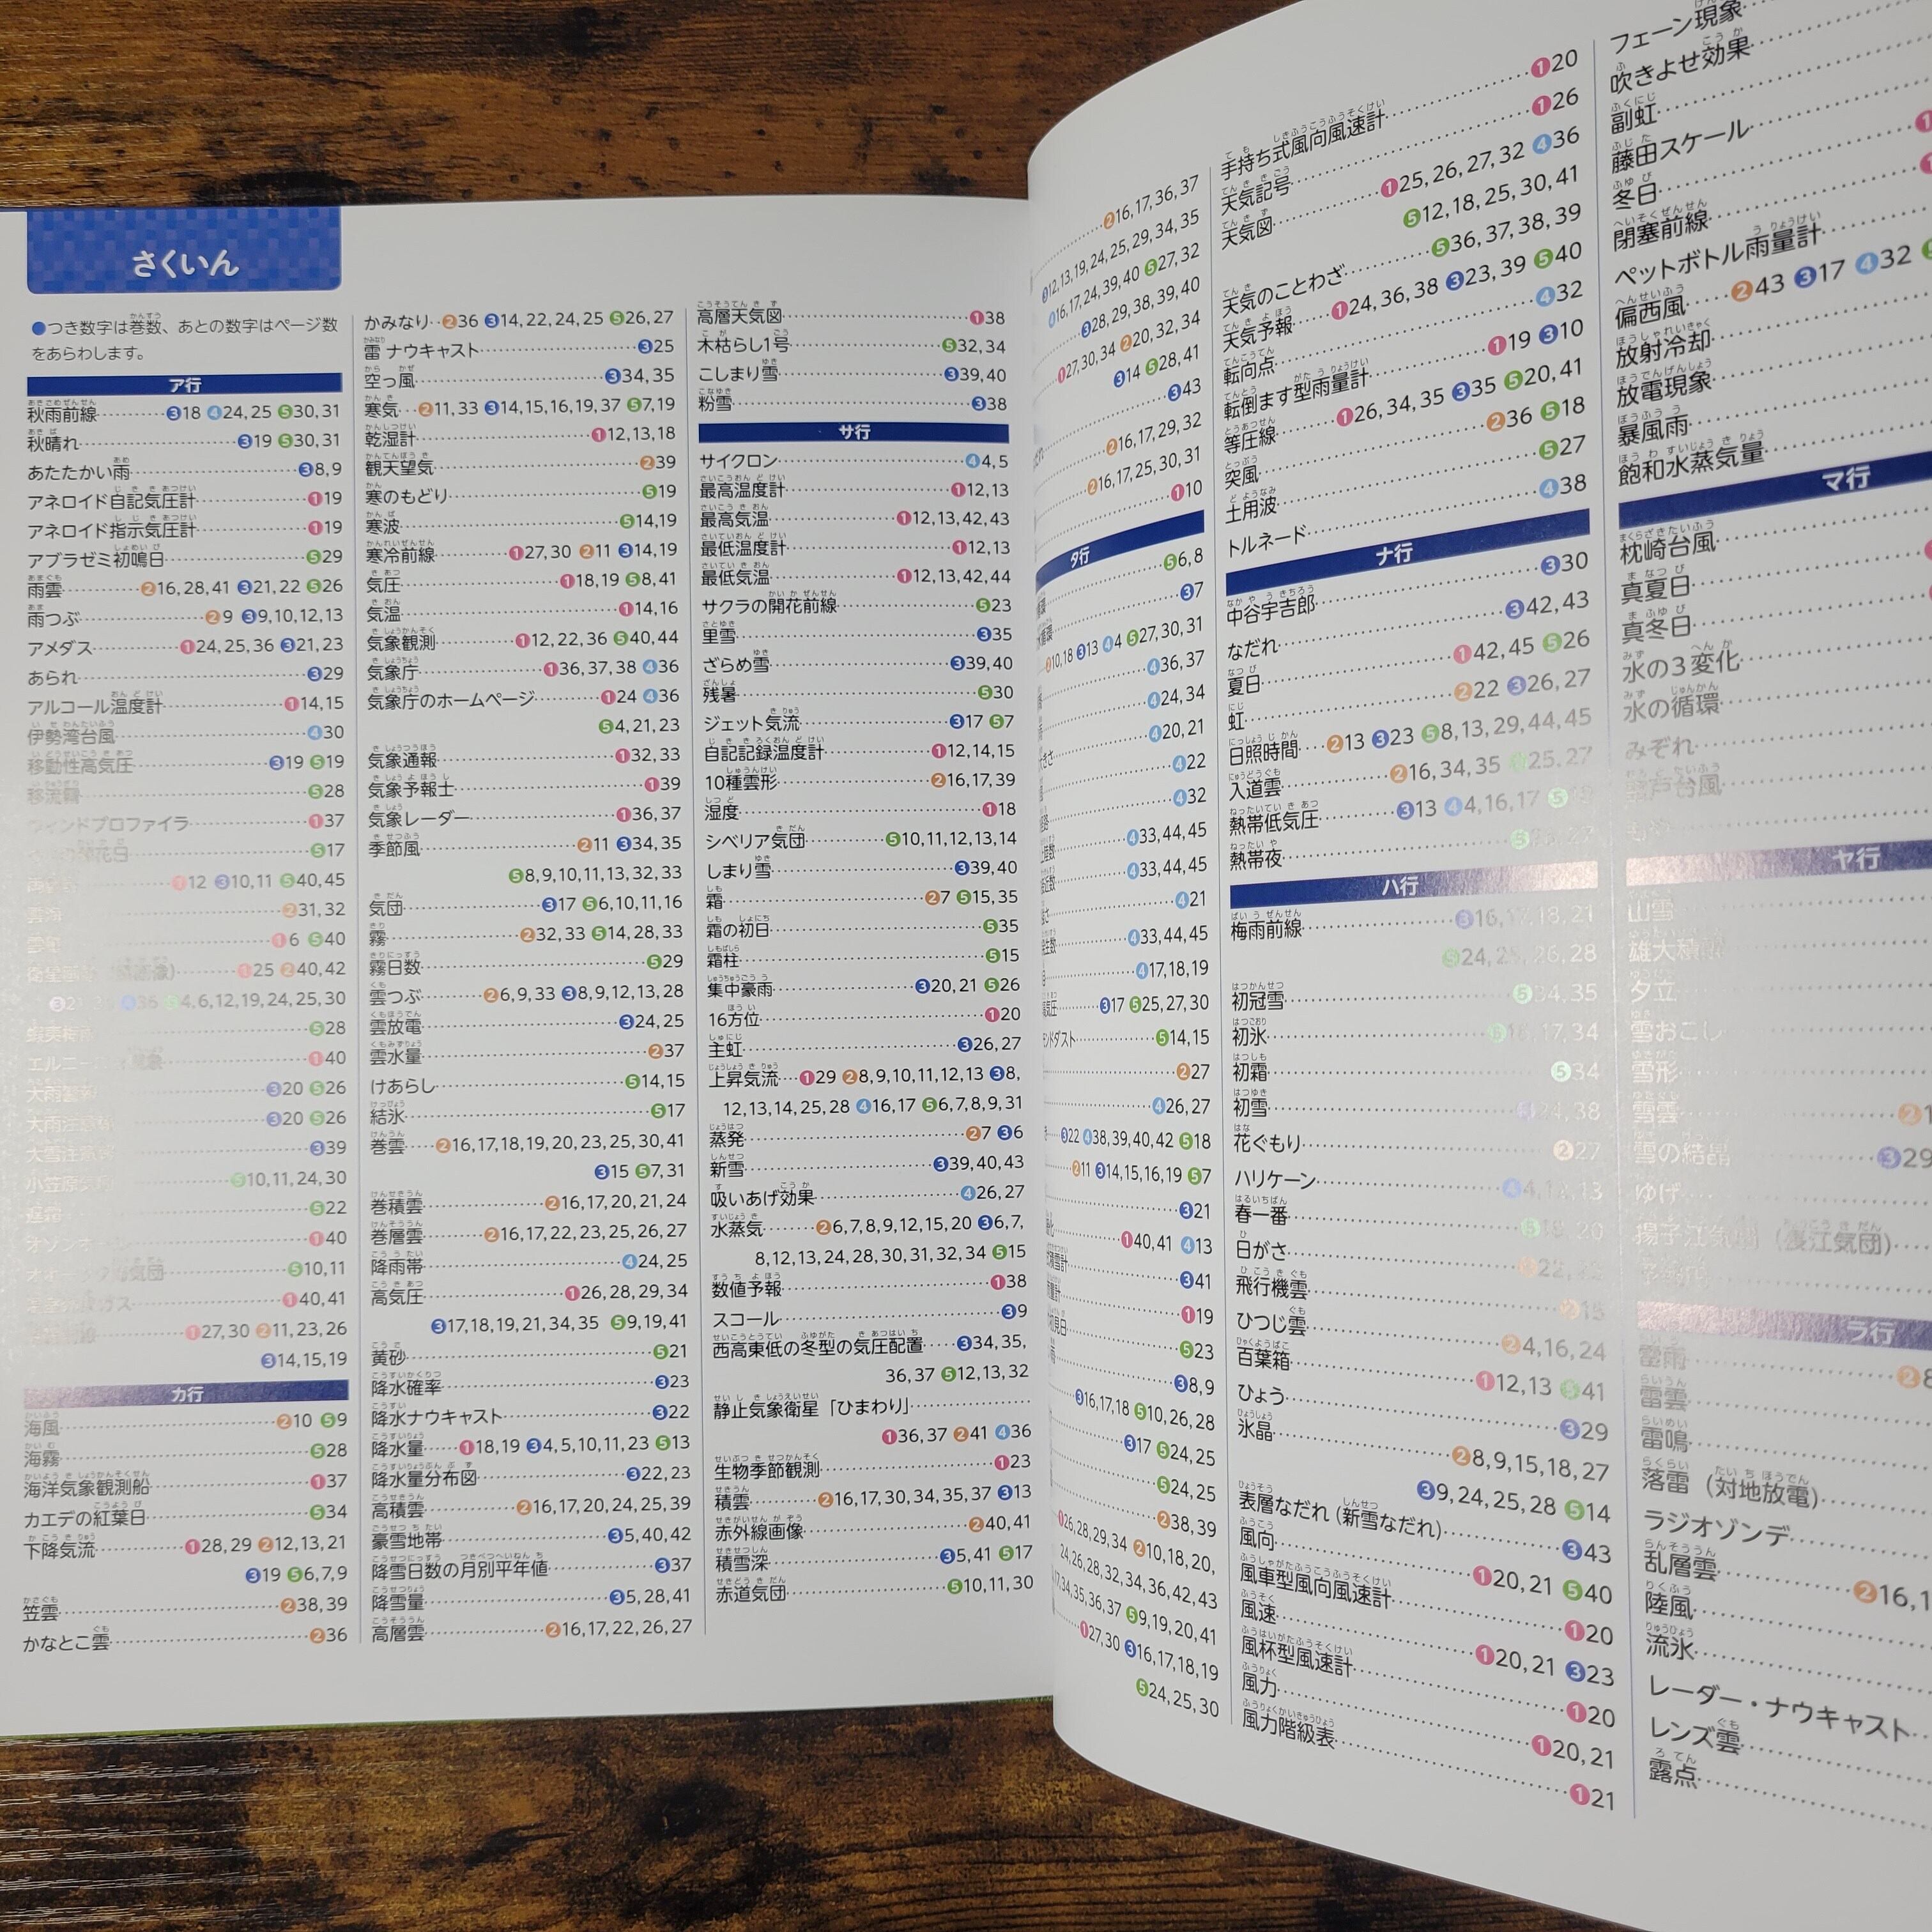 さくいん
●つき数字は巻数、あとの数字はページ数
をあらわします。
ア行
秋雨前線 ③18 ④24,25 ⑤30,31
秋晴れ ③19 ⑤30,31
あたたかい雨 ③8,9
アネロイド自記気圧計 ①19
アネロイド指示気圧計 ①19
アブラゼミ初鳴日 ⑤29
雨雲 ②16,28,41 ③21,22 ⑤26
雨つぶ ②9 ③9,10,12,13
アメダス ①24,25,36 ③21,23
あられ ③29
アルコール温度計 ①14,15
伊勢湾台風 ④30
移動性高気圧 ③19 ⑤19
移流霧 ⑤28
ウィンドプロファイラ ①37
⑤17
①12 ③10,11 ⑤40,45
②31,32
①6 ⑤40
①25 ②40,42
4,6,12,19,24,25,30
⑤28
①40
大雨警報 ③20 ⑤26
大雨注意報 ③20 ⑤26
大雪注意報 ③39
小笠原気団 ⑤10,11,24,30
⑤22
①40
⑤10,11
①40,41
①27,30 ②11,23,26
③14,15,19
カ行
海風 ②10 ⑤9
海霧 ⑤28
海洋気象観測船 ①37
カエデの紅葉日 ⑤34
下降気流 ①28,29 ②12,13,21
③19 ⑤6,7,9
笠雲 ②38,39
かなとこ雲 ②36
かみなり ②36 ③14,22,24,25 ⑤26,27
雷ナウキャスト ③25
空っ風 ③34,35
寒気 ②11,33 ③14,15,16,19,37 ⑤7,19
乾湿計 ①12,13,18
観天望気 ②39
寒のもどり ⑤19
寒波 ⑤14,19
寒冷前線 ①27,30 ②11 ③14,19
気圧 ①18,19 ⑤8,41
気温 ①14,16
気象観測 ①12,22,36 ⑤40,44
気象庁 ①36,37,38 ④36
気象庁のホームページ ①24 ④36
⑤4,21,23
気象通報 ①32,33
気象予報士 ①39
気象レーダー ①36,37
季節風 ②11 ③34,35
⑤8,9,10,11,13,32,33
気団 ③17 ⑤6,10,11,16
霧 ②32,33 ⑤14,28,33
霧日数 ⑤29
雲つぶ ②6,9,33 ③8,9,12,13,28
雲放電 ③24,25
雲水量 ②37
けあらし ⑤14,15
結氷 ⑤17
巻雲 ②16,17,18,19,20,23,25,30,41
③15 ⑤7,31
巻積雲 ②16,17,20,21,24
巻層雲 ②16,17,22,23,25,26,27
降雨帯 ④24,25
高気圧 ①26,28,29,34
③17,18,19,21,34,35 ⑤9,19,41
黄砂 ⑤21
降水確率 ③23
降水ナウキャスト ③22
降水量 ①18,19 ③4,5,10,11,23 ⑤13
降水量分布図 ③22,23
高積雲 ②16,17,20,24,25,39
豪雪地帯 ③5,40,42
降雪日数の月別平年値 ③37
降雪量 ③5,28,41
高層雲 ②16,17,22,26,27
高層天気図 ①38
木枯らし1号 ⑤32,34
こしまり雪 ③39,40
粉雪 ③38
サ行
サイクロン ④4,5
最高温度計 ①12,13
最高気温 ①12,13,42,43
最低温度計 ①12,13
最低気温 ①12,13,42,44
サクラの開花前線 ⑤23
里雪 ③35
ざらめ雪 ③39,40
残暑 ⑤30
ジェット気流 ③17 ⑤7
自記記録温度計 ①12,14,15
10種雲形 ②16,17,39
湿度 ①18
シベリア気団 ⑤10,11,12,13,14
しまり雪 ③39,40
霜 ②7 ⑤15,35
霜の初日 ⑤35
霜柱 ⑤15
集中豪雨 ③20,21 ⑤26
16方位 ①20
主虹 ③26,27
上昇気流 ①29 ②8,9,10,11,12,13 ③8,
12,13,14,25,28 ④16,17 ⑤6,7,8,9,31
蒸発 ②7 ③6
新雪 ③39,40,43
吸いあげ効果 ④26,27
水蒸気 ②6,7,8,9,12,15,20 ③6,7,
8,12,13,24,28,30,31,32,34 ⑤15
数値予報 ①38
スコール ③9
西高東低の冬型の気圧配置 ③34,35,
36,37 ⑤12,13,32
静止気象衛星「ひまわり」
①36,37 ②41 ④36
生物季節観測 ①23
積雲 ②16,17,30,34,35,37 ③13
赤外線画像 ②40,41
積雪深 ③5,41 ⑤17
赤道気団 ⑤10,11,30
②16,17,36,37
③12,13,19,24,25,29,34,35
16,17,24,39,40 ⑤27,32
③28,29,38,39,40
①27,30,34 ②20,32,34
③14 ⑤28,41
③43
②16,17,29,32
②16,17,25,30,31
①10
タ行
⑤6,8
③7
10,18 ③13 ④4 ⑤27,30,31
④36,37
④24,34
④20,21
④22
④32
④33,44,45
④33,44,45
④21
④33,44,45
④17,18,19
③17 ⑤25,27,30
⑤14,15
②27
④26,27
③22 ④38,39,40,42 ⑤18
②11 ③14,15,16,19 ⑤7
③21
①40,41 ④13
③41
①19
⑤23
③8,9
③16,17,18 ⑤10,26,28
③17 ⑤24,25
⑤24,25
②38,39
①26,28,29,34 ②10,18,20,
24,26,28,32,34,36,42,43
17,34,35,36,37 ⑤9,19,20,41
①27,30 ③16,17,18,19
⑤24,25,30
手持ち式風向風速計 ①20
天気記号 ①26
天気図 ①25,26,27,32 ④36
⑤12,18,25,30,41
天気のことわざ ⑤36,37,38,39
天気予報 ①24,36,38 ③23,39 ⑤40
転向点 ④32
転倒ます型雨量計 ①19 ③10
等圧線 ①26,34,35 ③35 ⑤20,41
突風 ②36 ⑤18
土用波 ⑤27
トルネード ④38
ナ行
中谷宇吉郎 ③30
なだれ ③42,43
夏日 ①42,45 ⑤26
虹 ②22 ③26,27
日照時間 ②13 ③23 ⑤8,13,29,44,45
入道雲 ②16,34,35 ⑤25,27
熱帯低気圧 ③13 ④4,16,17
熱帯夜
ハ行
梅雨前線 ③16,17,18,21
⑤24,25,26,28
初冠雪 ⑤34,35
初氷 ⑤16,17,34
初霜 ⑤34
初雪
花ぐもり ②27
ハリケーン ④4,12,13
春一番
日がさ
飛行機雲 ②15
ひつじ雲 ②4,16,24
百葉箱 ①12,13 ⑤41
ひょう ③29
氷晶 ②8,9,15,18,27
③9,24,25,28 ⑤14
表層なだれ(新雪なだれ) ③43
風向 ①20,21 ⑤40
風車型風向風速計 ①20
風速 ①20,21 ③23
風杯型風速計 ①20
風力 ①20,21
風力階級表 ①21
フェーン現象
吹きよせ効果
副虹
藤田スケール
冬日
閉塞前線
ペットボトル雨量計
偏西風 ②43 ③17 ④32
放射冷却
放電現象
暴風雨
飽和水蒸気量
マ行
枕崎台風
真夏日
真冬日
水の3変化
水の循環
みぞれ
室戸台風
ヤ行
山雪
雄大積雲
夕立
雪おこし
雪形
雪雲
雪の結晶 ③29
ゆげ
揚子江気団(長江気団)
ラ行
雷雨
雷雲
雷鳴
落雷(対地放電)
ラジオゾンデ
乱層雲
陸風
流氷
レーダー・ナウキャスト
レンズ雲
露点